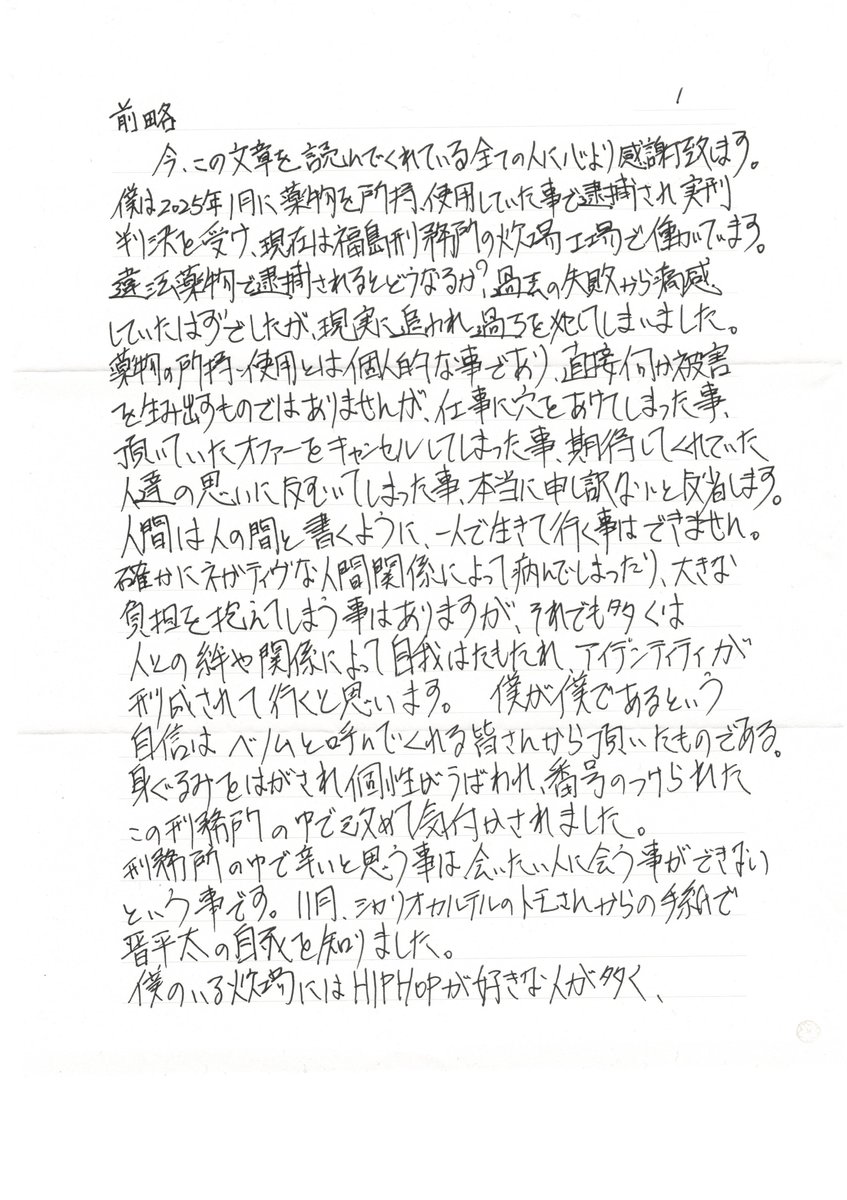 1
前略
今、この文章を読んでくれている全ての人に心より感謝致します。
僕は2025年1月に薬物を所持、使用していた事で逮捕され実刑
判決を受け、現在は福島刑務所の炊場工場で働いでます。
違法薬物で逮捕されるとどうなるか?過去の失敗から痛感
していたはずでしたが、現実に追われ過ちを犯してしまいました。
薬物の所持・使用とは個人的な事であり、直接何か被害
を生み出すものではありませんが、仕事に穴をあけてしまった事、
頂いていたオファーをキャンセルしてしまった事、期待してくれていた
人達の思いに反むいてしまった事、本当に申し訳ないと反省します。
人間は人の間と書くように、一人で生きて行く事はできません。
確かにネガティヴな人間関係によって病んでしまったり、大きな
負担を抱えてしまう事はありますが、それでも多くは
人との絆や関係によって自我はたもたれ、アイデンティティが
形成されて行くと思います。 僕が僕であるという
自信は ベノムと呼んでくれる皆さんから頂いたものである。
身ぐるみをはがされ個性がうばわれ、番号のつけられた
この刑務所の中で改めて気付かされました。
刑務所の中で辛いと思う事は会いたい人に会う事ができない
という事です。11月、シカリオカルテルのトモさんからの手紙で
晋平太の自死を知りました。
僕のいる炊場にはHIPHOPが好きな人が多く、